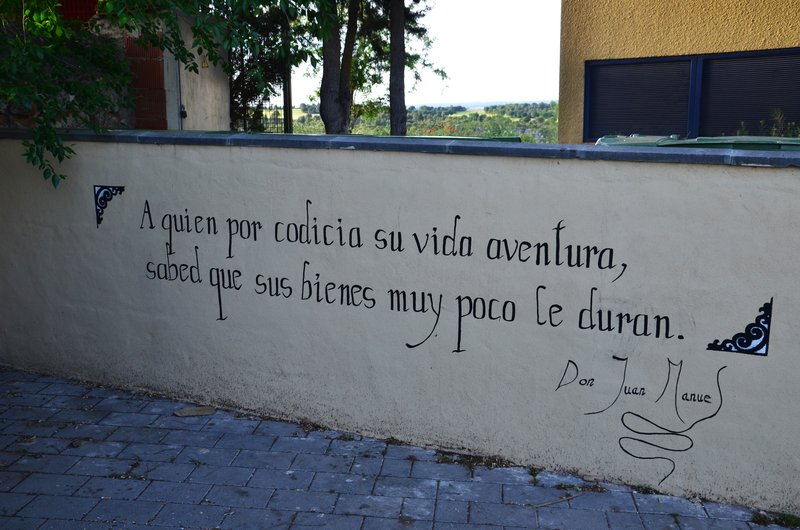 A quien por codicia su vida aventura,
sabed que sus bienes muy poco le duran.
Don Juan Manuel